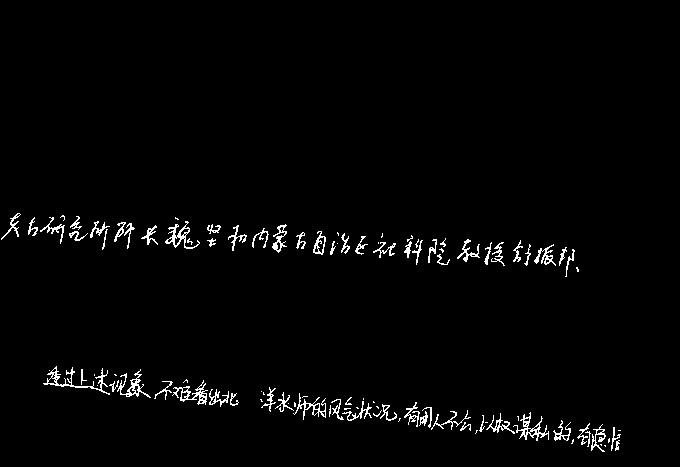 考古研究所所长魏坚和内蒙古自治区社科院教授舒振邦、
透过上述现象,不难看出北洋水师的风气状况,有用人不公,以权谋私的,有隐情